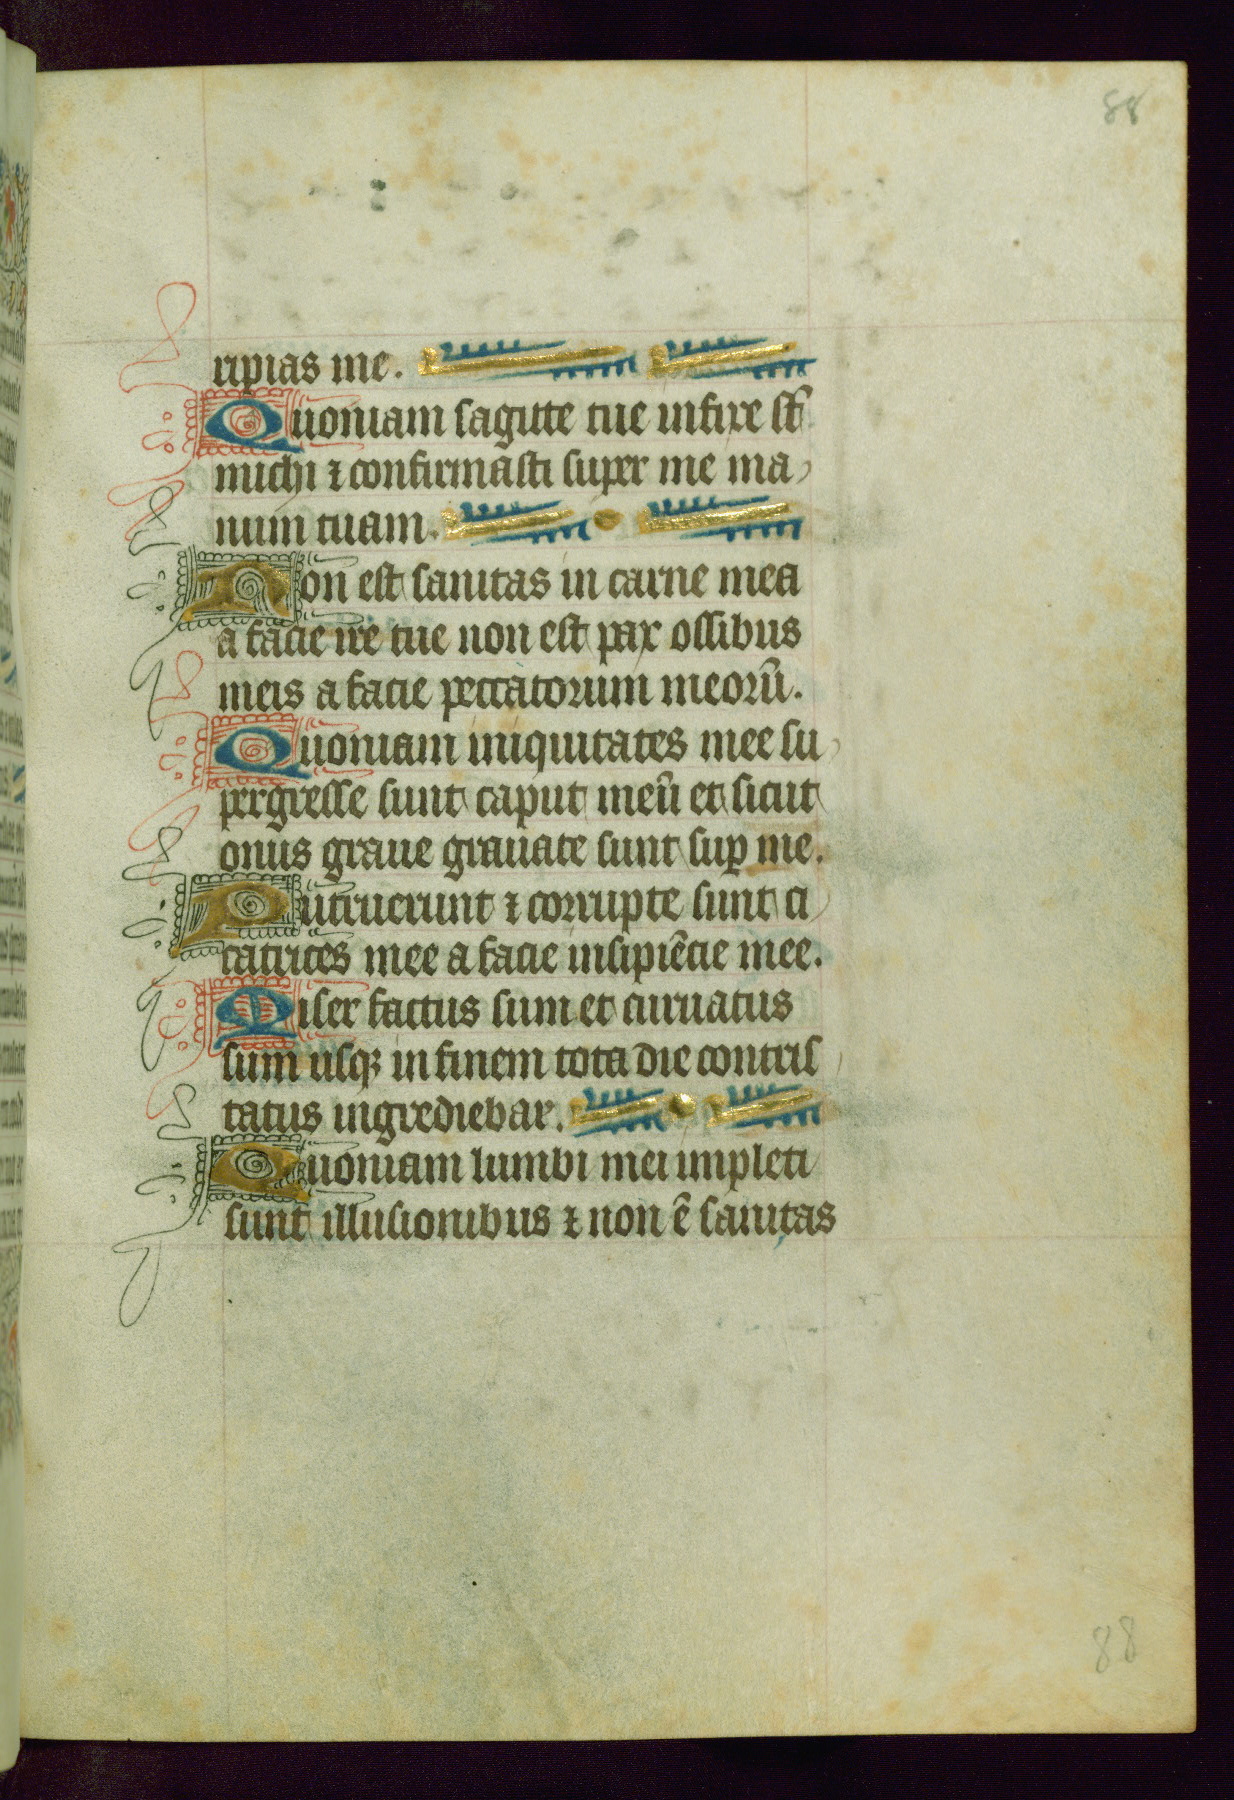 88
ripias me.
Quoniam sagitte tue infixe st̄
michi ⁊ confirmasti super me ma
num tuam.
Non est sanitas in carne mea
a facie ire tue non est pax ossibus
meis a facie peccatorum meorū.
Quoniam iniquitates mee su
pergresse sunt caput meū et sicut
onus graue grauate sunt suꝑ me.
Putruerunt ⁊ corrupte sunt ci
catrices mee a facie insipiēcie mee.
Miser factus sum et curuatus
sum usqꝫ in finem tota die contris
tatus ingrediebar.
Quoniam lumbi mei impleti
sunt illusionibus ⁊ non ē sanitas
88